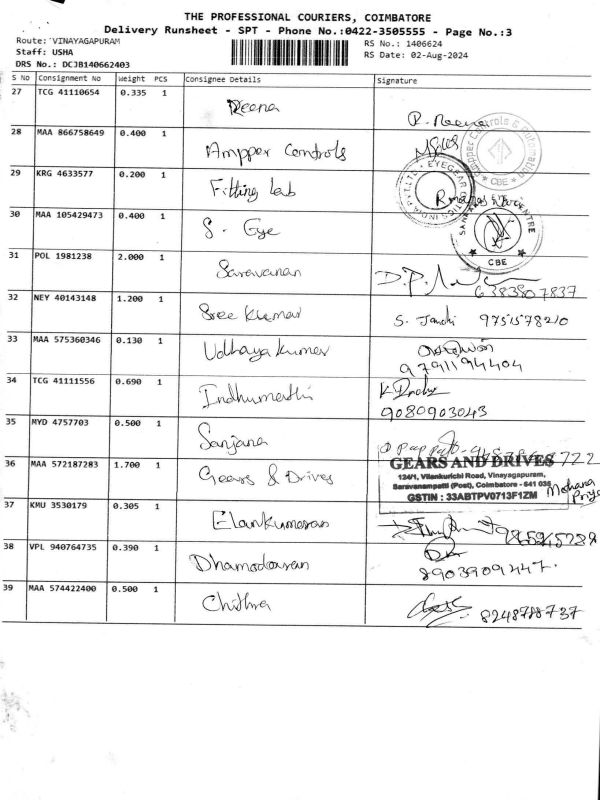 THE PROFESSIONAL COURIERS, COIMBATORE
Delivery Runsheet - SPT - Phone No.:0422-3505555 - Page No.:3
Route: VINAYAGAPURAM
RS No.: 1406624
Staff: USHA
RS Date: 02-Aug-2024
DRS No.: DCJB140662403
S No Consignment No Weight PCS Consignee Details Signature
27 TCG 41110654 0.335 1 Reena R. Reena
28 MAA 866758649 0.400 1 Ampper Controls
29 KRG 4633577 0.200 1 Fitting Lab
30 MAA 105429473 0.400 1 S. Gye
CBE
CBE
31 POL 1981238 2.000 1 Saravanan
6383807837
32 NEY 40143148 1.200 1 Sree Kumar S. Janaki 9751578210
33 MAA 575360346 0.130 1 Udhaya Kumar
9791194404
34 TCG 41111556 0.690 1 Indhumathi
9080903043
35 MYD 4757703 0.500 1 Sanjana
36 MAA 572187283 1.700 1 Gears & Drives
GEARS AND DRIVES
124/1, Vilankurichi Road, Vinayagapuram,
Saravanampatti (Post), Coimbatore - 641 035
GSTIN : 33ABTPV0713F1ZM
Mohana
Priya
37 KMU 3530179 0.305 1 Elankumaran
38 VPL 940764735 0.390 1 Dhamodaran
8903909447.
39 MAA 574422400 0.500 1 Chithra 8248788737